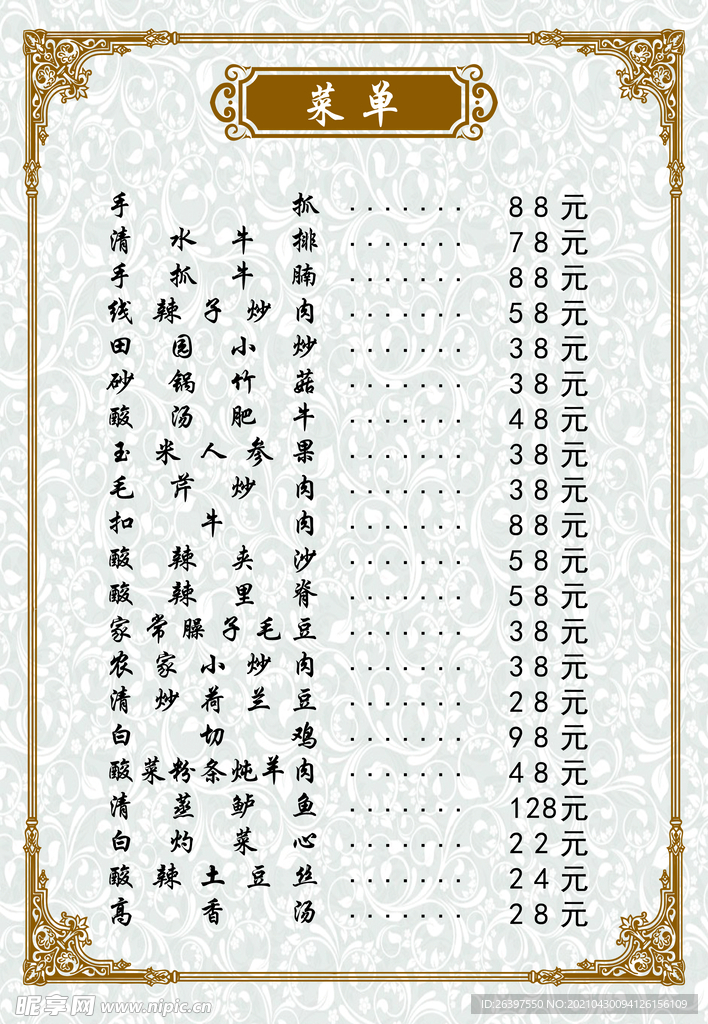 菜单
手抓 ....... 88元
清水牛排 ....... 78元
手抓牛腩 ....... 88元
线辣子炒肉 ....... 58元
田园小炒 ....... 38元
砂锅竹菇 ....... 38元
酸汤肥牛 ....... 48元
玉米人参果 ....... 38元
毛芹炒肉 ....... 38元
扣牛肉 ....... 88元
酸辣夹沙 ....... 58元
酸辣里脊 ....... 58元
家常臊子毛豆 ....... 38元
农家小炒肉 ....... 38元
清炒荷兰豆 ....... 28元
白切鸡 ....... 98元
酸菜粉条炖羊肉 ....... 48元
清蒸鲈鱼 ....... 128元
白灼菜心 ....... 22元
酸辣土豆丝 ....... 24元
高香汤 ....... 28元
昵享网 www.nipic.cn
ID:26397550 NO:20210430094126156109